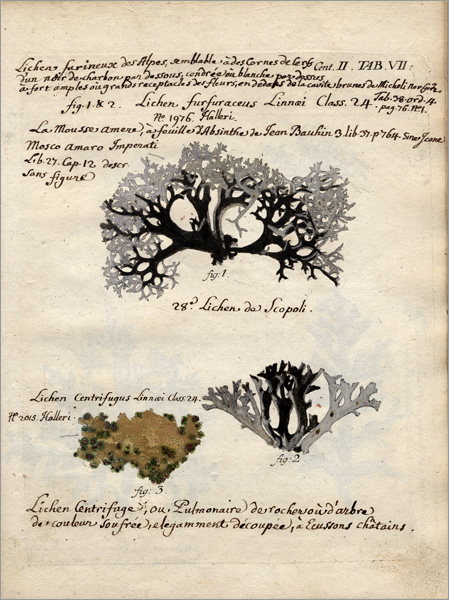 Lichen farineux des Alpes, semblable à des Cornes de Cerf
Cent. II. TAB. VII.
d'un noir de charbon par dessous, cendrée ou blanche par dessus
à fort amples ou grands receptacles des fleurs, en dedans de la cavité brunes de Micheli
Tab. 38. ord. 4.
pag. 76. N° 1.
fig. 1. & 2. Lichen furfuraceus Linnæi Class. 24.
N° 1976. Halleri.
La Mousse amere, à feuille d'Absinthe de Jean Bauhin 3. lib. 37. p. 764. Sine Icone
Mosco amaro Imperati
Lib. 27. Cap. 12 descr.
sans figure
fig: 1.
28.e Lichen de Scopoli.
Lichen Centrifugus Linnæi Class. 24.
N° 2015. Halleri.
fig: 2
fig: 3
Lichen Centrifuge, ou Pulmonaire de rocher où d'arbre
de couleur soufrée, elegamment découpée, à Ecussons châtains.